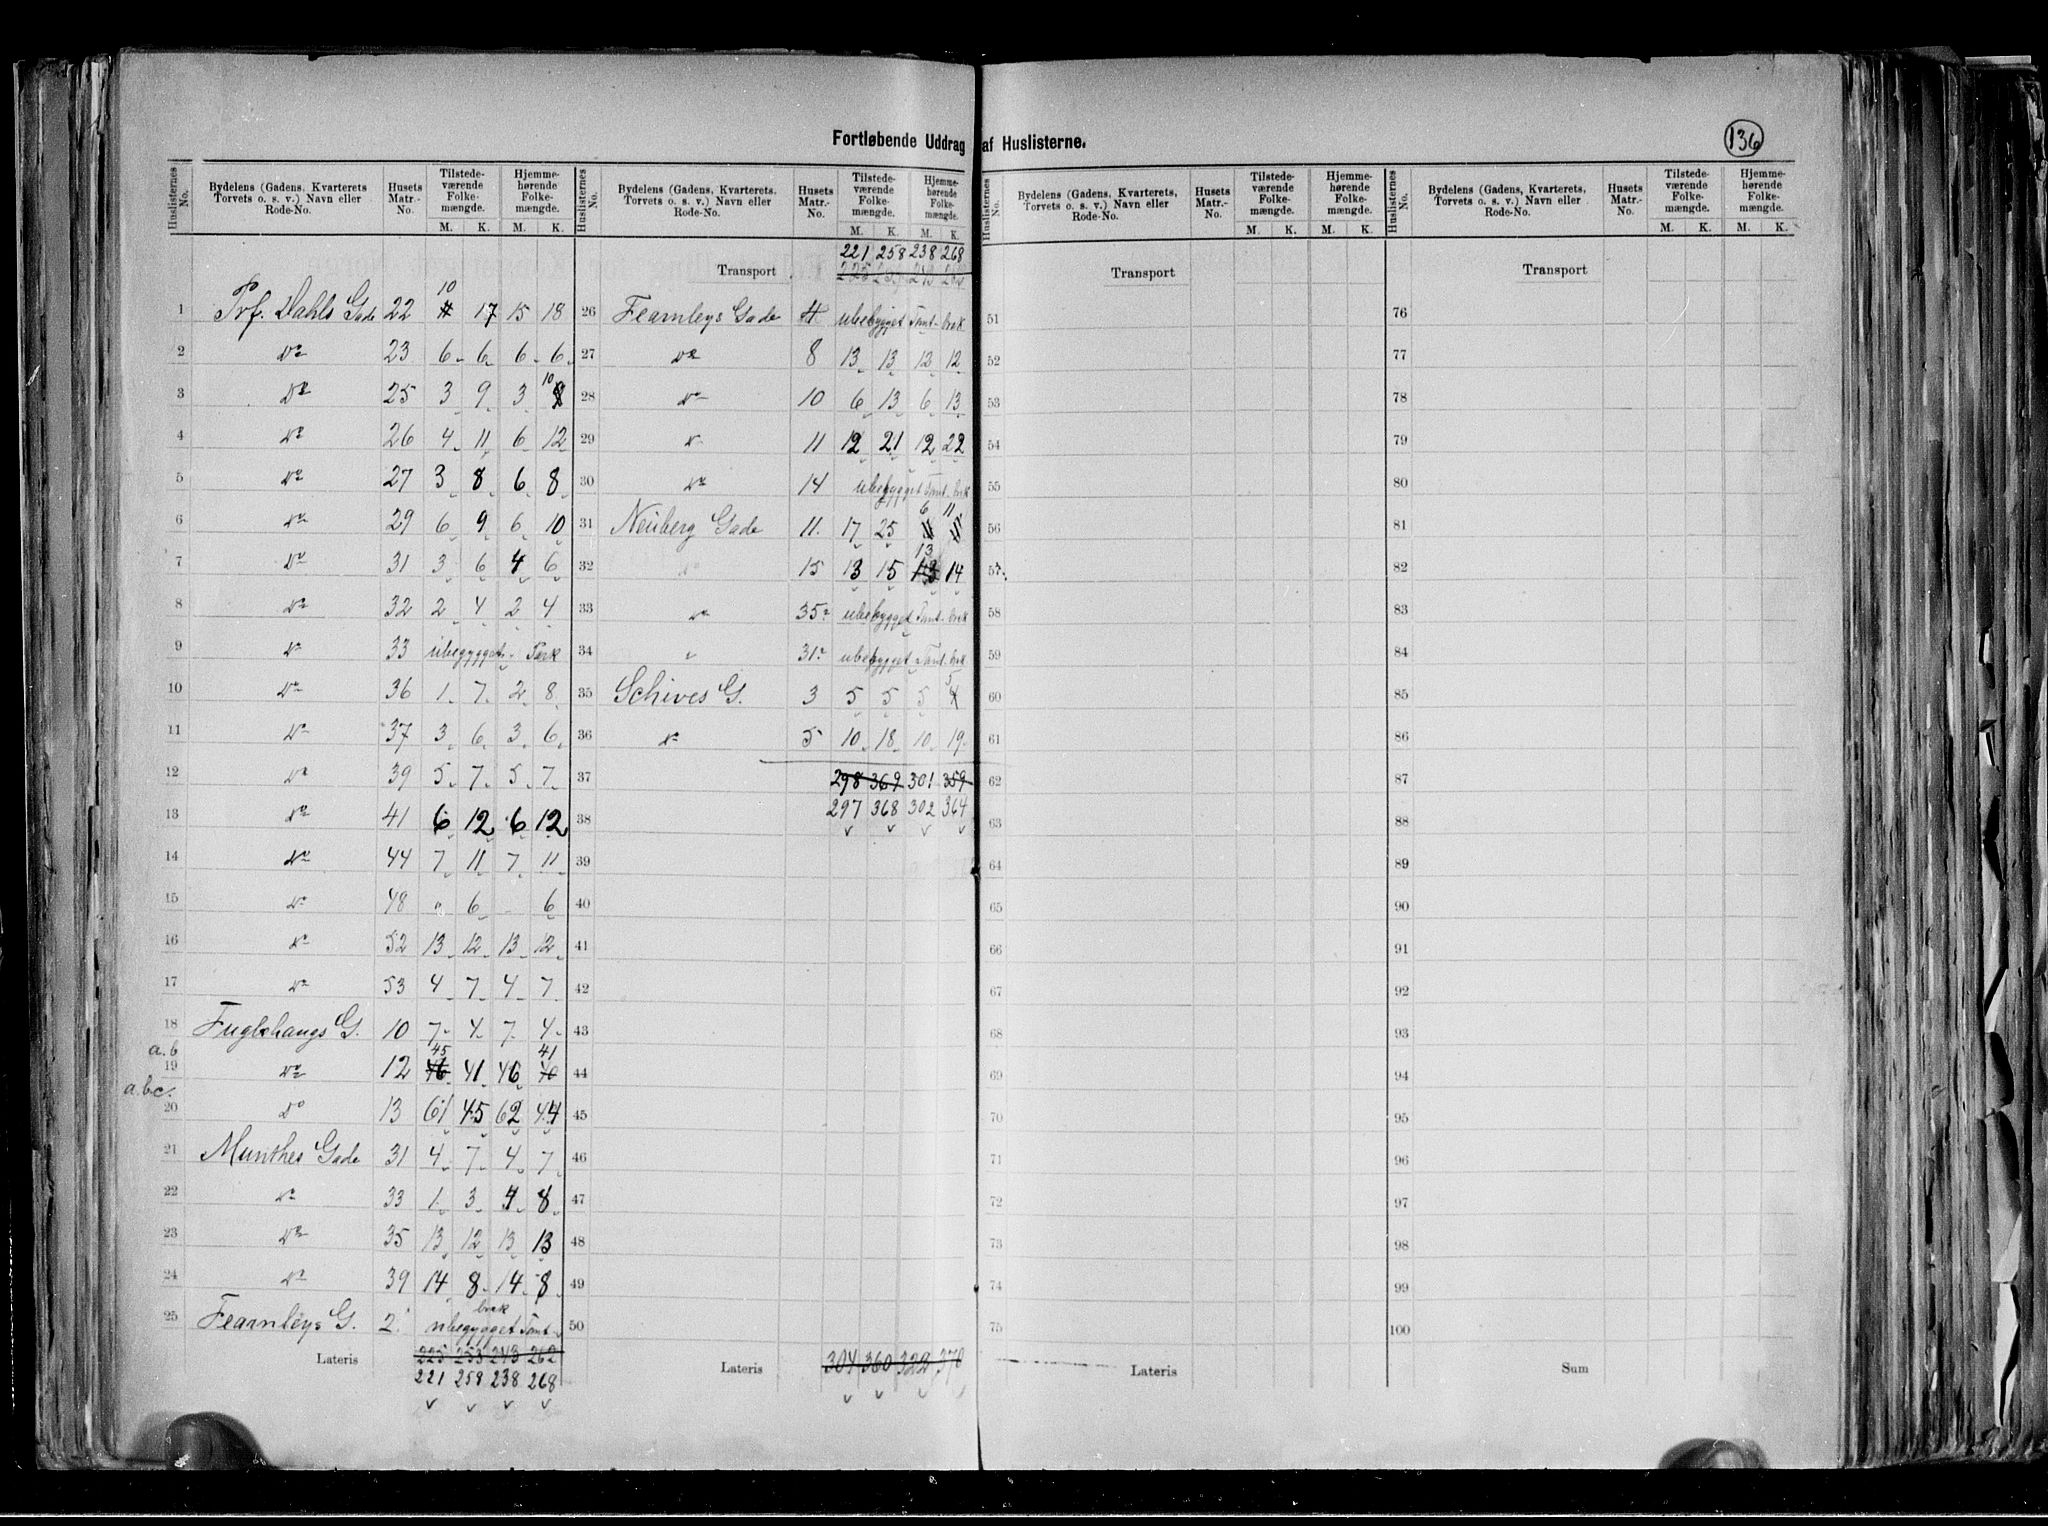 Fortløbende Uddrag af Huslisterne.
136
Huslisternes No. Bydelens (Gadens, Kvarterets Torvets o. s. v.) Navn eller Rode-No. Husets Matr.-No. Tilstede-værende Folke-mængde. M. K. Hjemme-hørende Folke-mængde. M. K.
1 Prf. Dahls Gade 22 10 17 15 18
2 Do 23 6 6 6 6
3 Do 25 3 9 3 10
4 Do 26 4 11 6 12
5 Do 27 3 8 6 8
6 Do 29 6 9 6 10
7 Do 31 3 6 4 6
8 Do 32 2 4 2 4
9 Do 33 ubebygget - Park
10 Do 36 1 7 2 8
11 Do 37 3 6 3 6
12 Do 39 5 7 5 7
13 Do 41 6 12 6 12
14 Do 44 7 11 7 11
15 Do 48 " 6 - 6
16 Do 52 13 12 13 12
17 Do 53 4 7 4 7
18 Fuglehaugs G. 10 7 4 7 4
a.b
19 Do 12 45 41 46 41
a.b.c.
20 Do 13 61 45 62 44
21 Munthes Gade 31 4 7 4 7
22 Do 33 1 3 4 8
23 Do 35 13 12 13 13
24 Do 39 14 8 14 8
25 Fearnleys G. 2 ubebygget Tomt brak
Lateris 225 253 243 262
221 258 238 268
Huslisternes No. Bydelens (Gadens, Kvarterets, Torvets o. s. v.) Navn eller Rode-No. Husets Matr.-No. Tilstede-værende Folke-mængde. M. K. Hjemme-hørende Folke-mængde. M. K.
221 258 238 268
Transport
26 Fearnleys Gade 4 ubebygget Tomt - brak
27 Do 8 13 13 12 12
28 Do 10 6 13 6 13
29 Do 11 12 21 12 22
30 Do 14 ubebygget Tomt - brak
31 Neuberg Gade 11. 17 25 6 11
32 Do 15 13 15 13 14
33 Do 35a ubebygget Tomt - brak
34 " 31a ubebygget Tomt - brak
35 Schives G. 3 5 5 5 5
36 Do 5 10 18 10 19
37 298 369 301 359
38 297 368 302 364
39
40
41
42
43
44
45
46
47
48
49
50
Lateris 304 360 322 370
Huslisternes No. Bydelens (Gadens, Kvarterets, Torvets o. s. v.) Navn eller Rode-No. Husets Matr.-No. Tilstede-værende Folke-mængde. M. K. Hjemme-hørende Folke-mængde. M. K.
Transport
51
52
53
54
55
56
57
58
59
60
61
62
63
64
65
66
67
68
69
70
71
72
73
74
75
Lateris
Huslisternes No. Bydelens (Gadens, Kvarterets, Torvets o. s. v.) Navn eller Rode-No. Husets Matr.-No. Tilstede-værende Folke-mængde. M. K. Hjemme-hørende Folke-mængde. M. K.
Transport
76
77
78
79
80
81
82
83
84
85
86
87
88
89
90
91
92
93
94
95
96
97
98
99
100
Sum